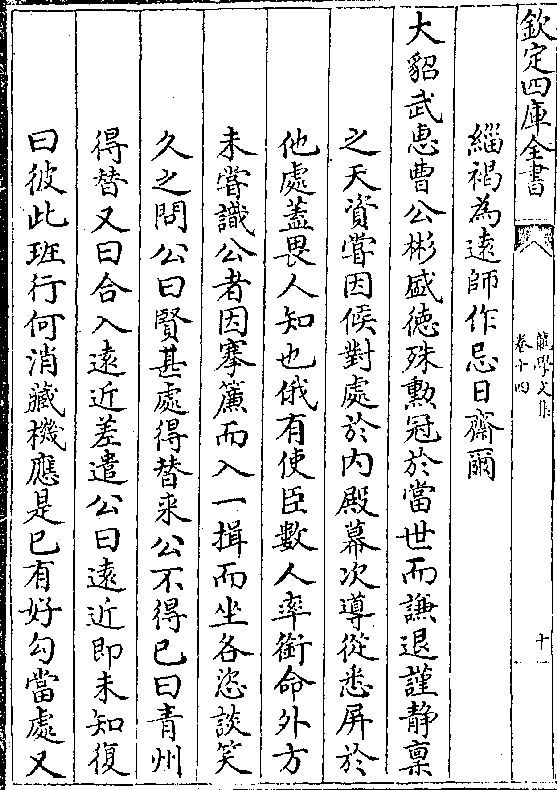 欽定四庫全書
龍學文集
卷十四
十一
緇褐為遠師作忌日齋爾
大貂武惠曹公彬盛德殊勲冠於當世而謙退謹静稟
之天資嘗因候對處於内殿幕次導從悉屏於
他處蓋畏人知也俄有使臣數人率銜命外方
未嘗識公者因搴簾而入一揖而坐各恣談笑
久之問公曰賢甚處得替来公不得已曰青州
得替又曰合入遠近差遣公曰遠近即未知復
曰彼此班行何消藏機應是已有好勾當處又